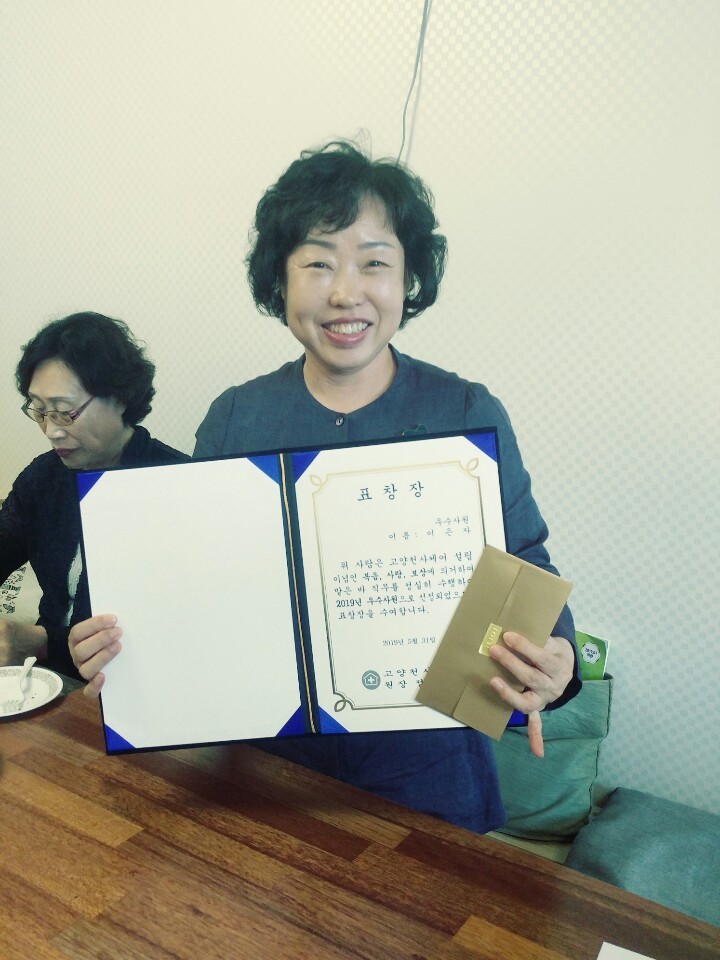 표창장
우수사원
이 름 : 이 은 자
위 사람은 고양천사케어 설립
이념인 복음, 사랑, 보상에 의거하여
맡은 바 직무를 성실히 수행하
2019년 우수사원으로 선정되었으
표창장을 수여합니다.
2019년 5월 31
고양천사
원장